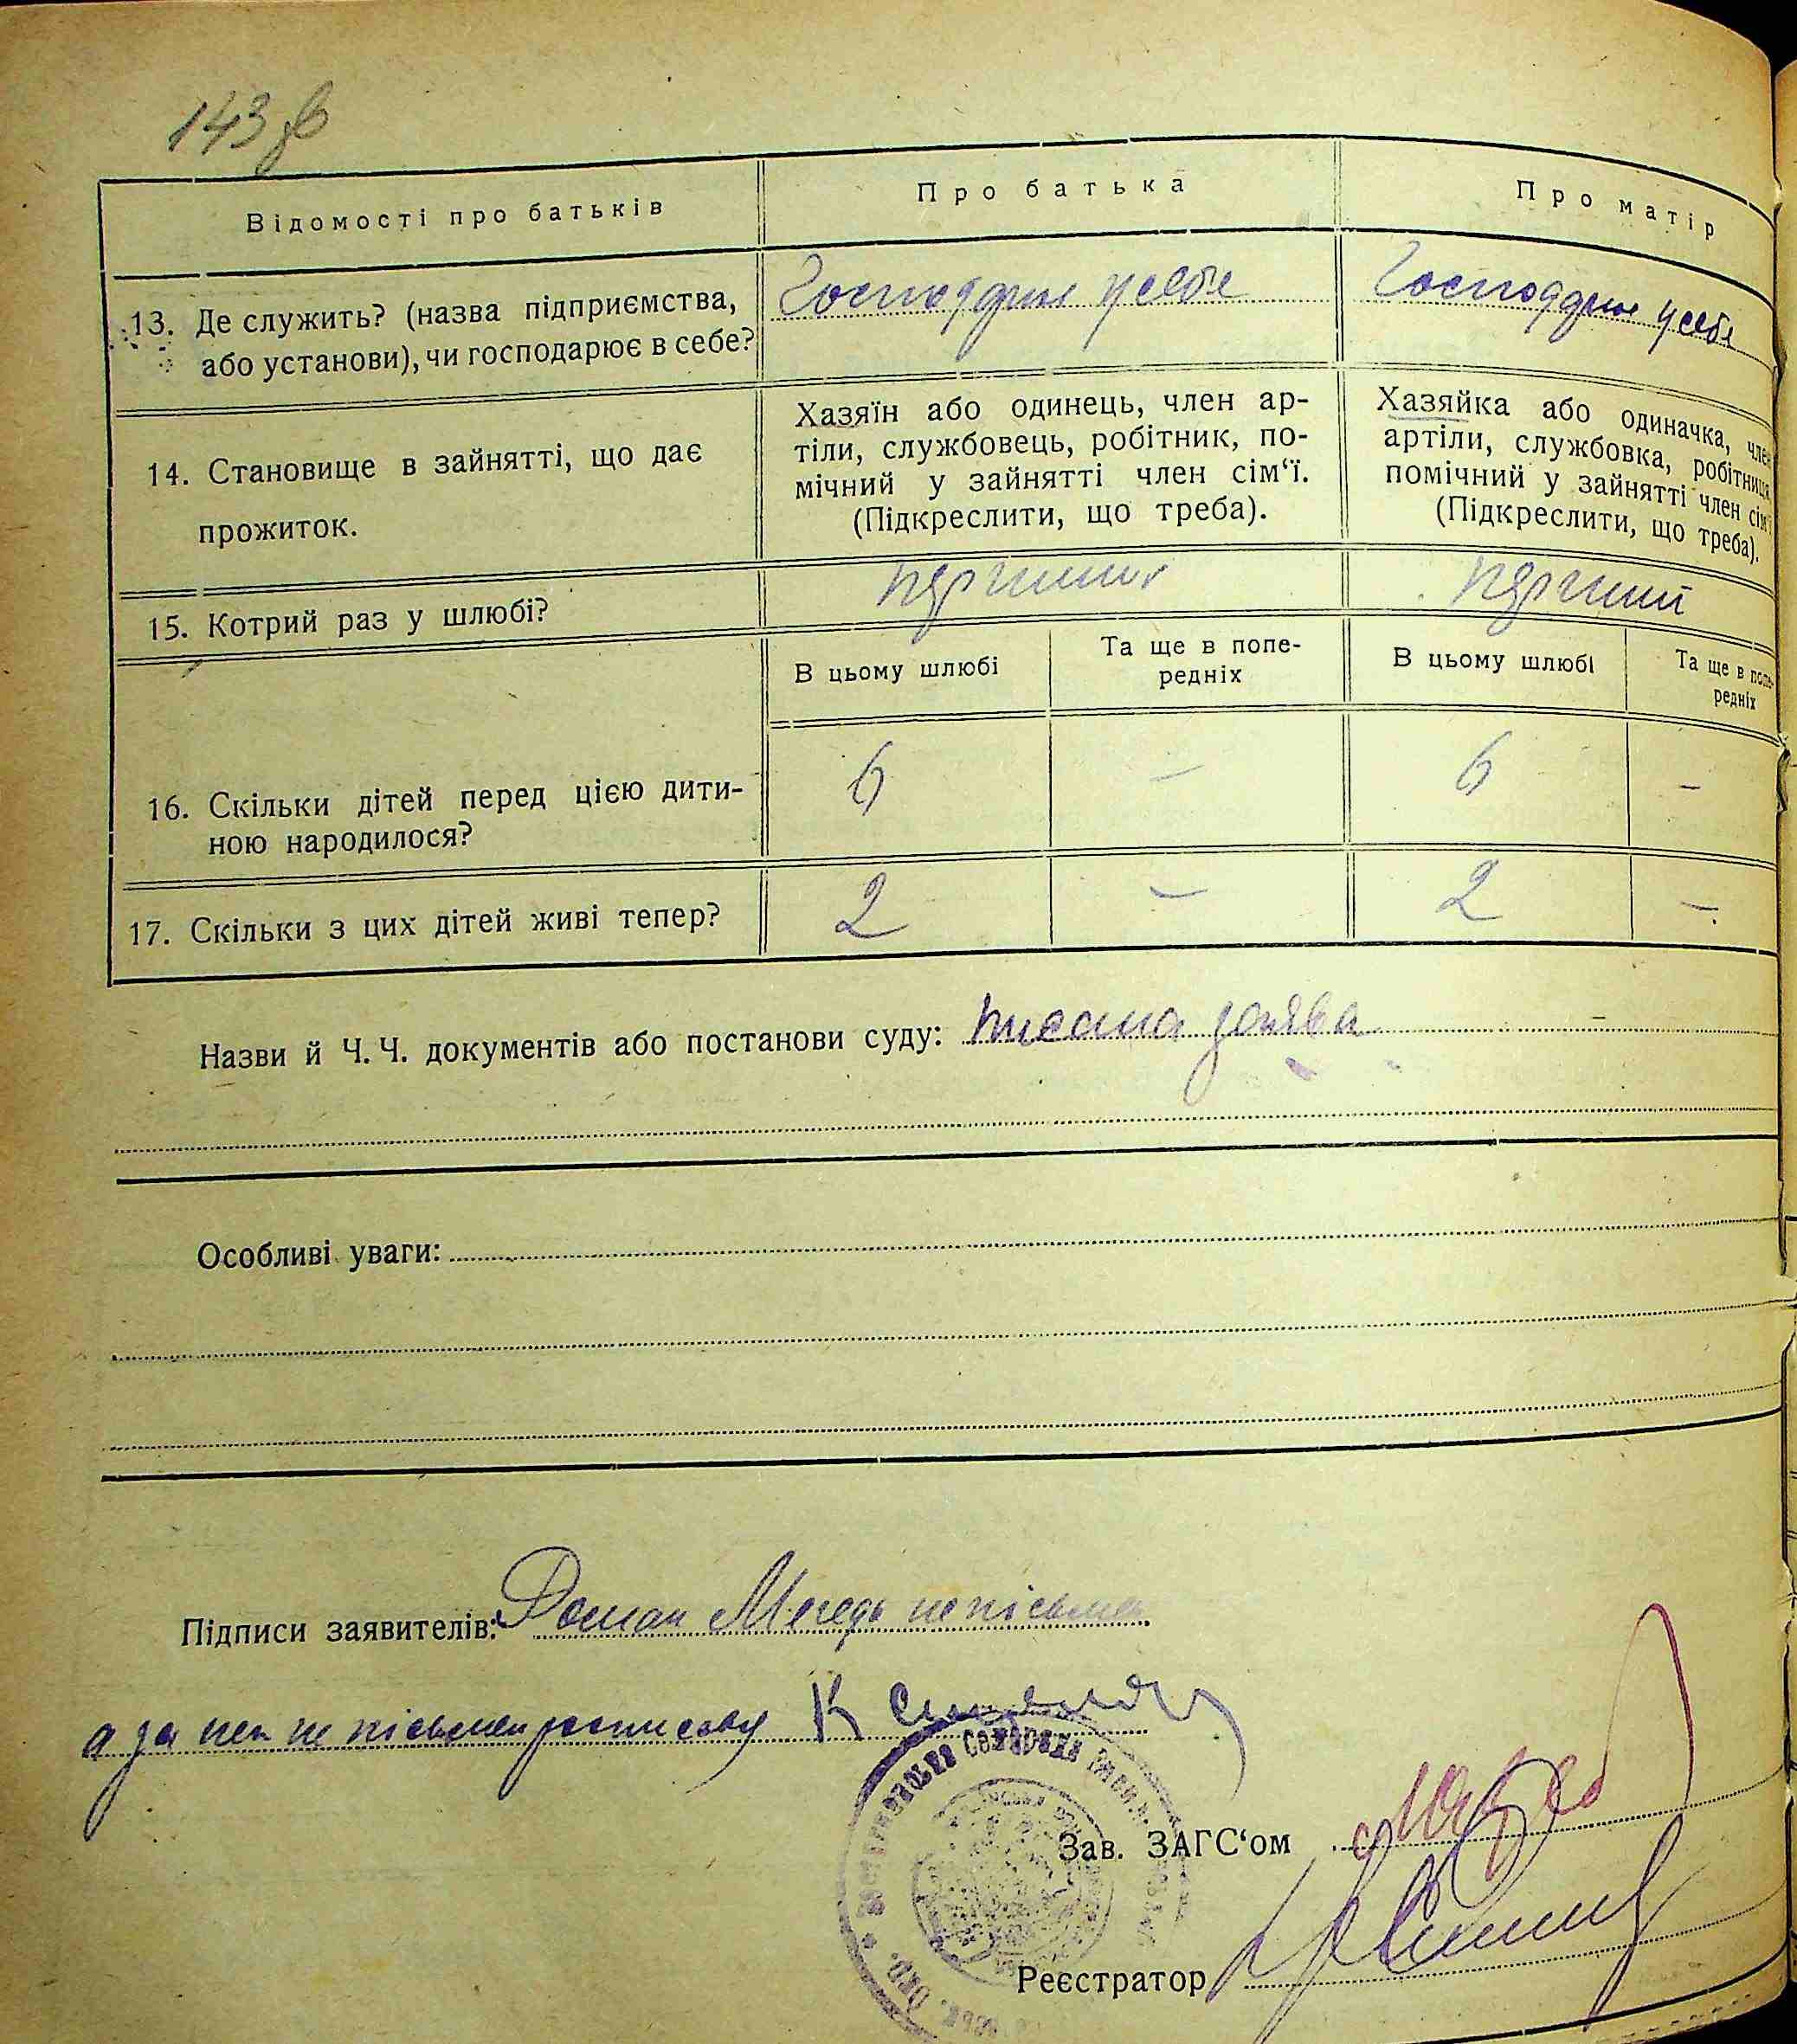 143 зв
Відомості про батьків
Про батька
Про матір
13. Де служить? (назва підприємства,
або установи), чи господарює в себе?
Господарює у себе
Господарює у себе
14. Становище в зайнятті, що дає
прожиток.
Хазяїн або одинець, член ар-
тіли, службовець, робітник, по-
мічний у зайнятті член сім‘ї.
(Підкреслити, що треба).
Хазяйка або одиначка, член
артіли, службовка, робітниця,
помічний у зайнятті член сім‘ї
(Підкреслити, що треба).
15. Котрий раз у шлюбі?
перший
перший
В цьому шлюбі
Та ще в попе-
редніх
В цьому шлюбі
Та ще в попе-
редніх
16. Скільки дітей перед цією дити-
ною народилося?
6 — 6 —
17. Скільки з цих дітей живі тепер?
2 — 2 —
Назви й Ч. Ч. документів або постанови суду: писана заява —
Особливі уваги:
Підписи заявителів: Роман
а за
Зав. ЗАГС‘ом
Реєстратор